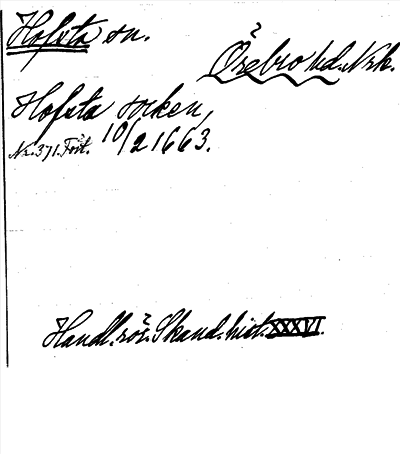 Hofsta sn.
Örebro hd. Nrk.
Hofsta socken,
Nr. 371. Fört. 10/2 1663.
Handl. rör. Skand. hist. XXXVI.